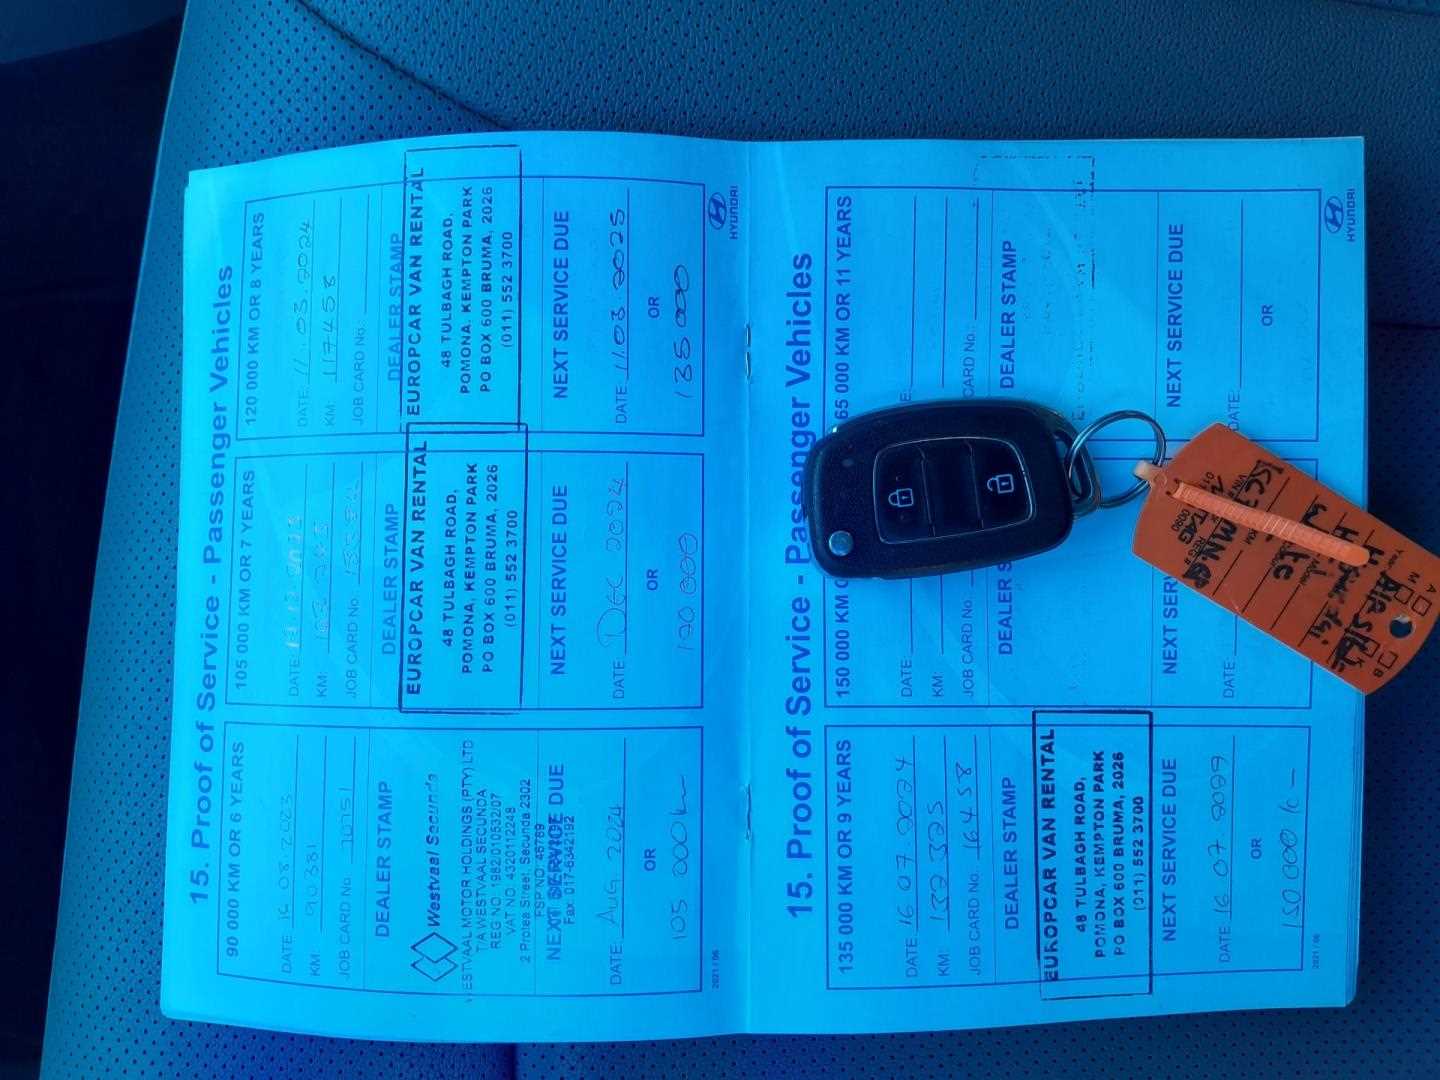 15. Proof of Service - Passenger Vehicles
90 000 KM OR 6 YEARS
DATE 16 08 2023
KM: 90381
JOB CARD No 30751
DEALER STAMP
Westvaal Secunda
WESTVAAL MOTOR HOLDINGS (PTY) LTD
T/A WESTVAAL SECUNDA
REG NO. 1982/010532/07
VAT NO. 4320112248
2 Protea Street, Secunda, 2302
FSP NO. 46789
Fax: 017-6342192
NEXT SERVICE DUE
DATE: Aug 2024
OR
105 000km
2021 / 06
105 000 KM OR 7 YEARS
DATE
KM:
JOB CARD No.
DEALER STAMP
EUROPCAR VAN RENTAL
48 TULBAGH ROAD,
POMONA, KEMPTON PARK
PO BOX 600 BRUMA, 2026
(011) 552 3700
NEXT SERVICE DUE
DATE: Dec 2024
OR
120 000
120 000 KM OR 8 YEARS
DATE: 11.03.2024
KM: 117458
JOB CARD No.:
DEALER STAMP
EUROPCAR VAN RENTAL
48 TULBAGH ROAD,
POMONA, KEMPTON PARK
PO BOX 600 BRUMA, 2026
(011) 552 3700
NEXT SERVICE DUE
DATE: 11.03.2025
OR
135 000
HYUNDAI
15. Proof of Service - Passenger Vehicles
135 000 KM OR 9 YEARS
DATE 16 07 2024
KM: 132 325
JOB CARD No 16458
DEALER STAMP
EUROPCAR VAN RENTAL
48 TULBAGH ROAD,
POMONA, KEMPTON PARK
PO BOX 600 BRUMA, 2026
(011) 552 3700
NEXT SERVICE DUE
DATE: 16 07
OR
150 000
2021 / 06
150 000 KM
DATE:
KM:
JOB CARD No
DEALER
NEXT
DATE:
65 000 KM OR 11 YEARS
CARD No.:
DEALER STAMP
NEXT SERVICE DUE
DATE:
OR
HYUNDAI